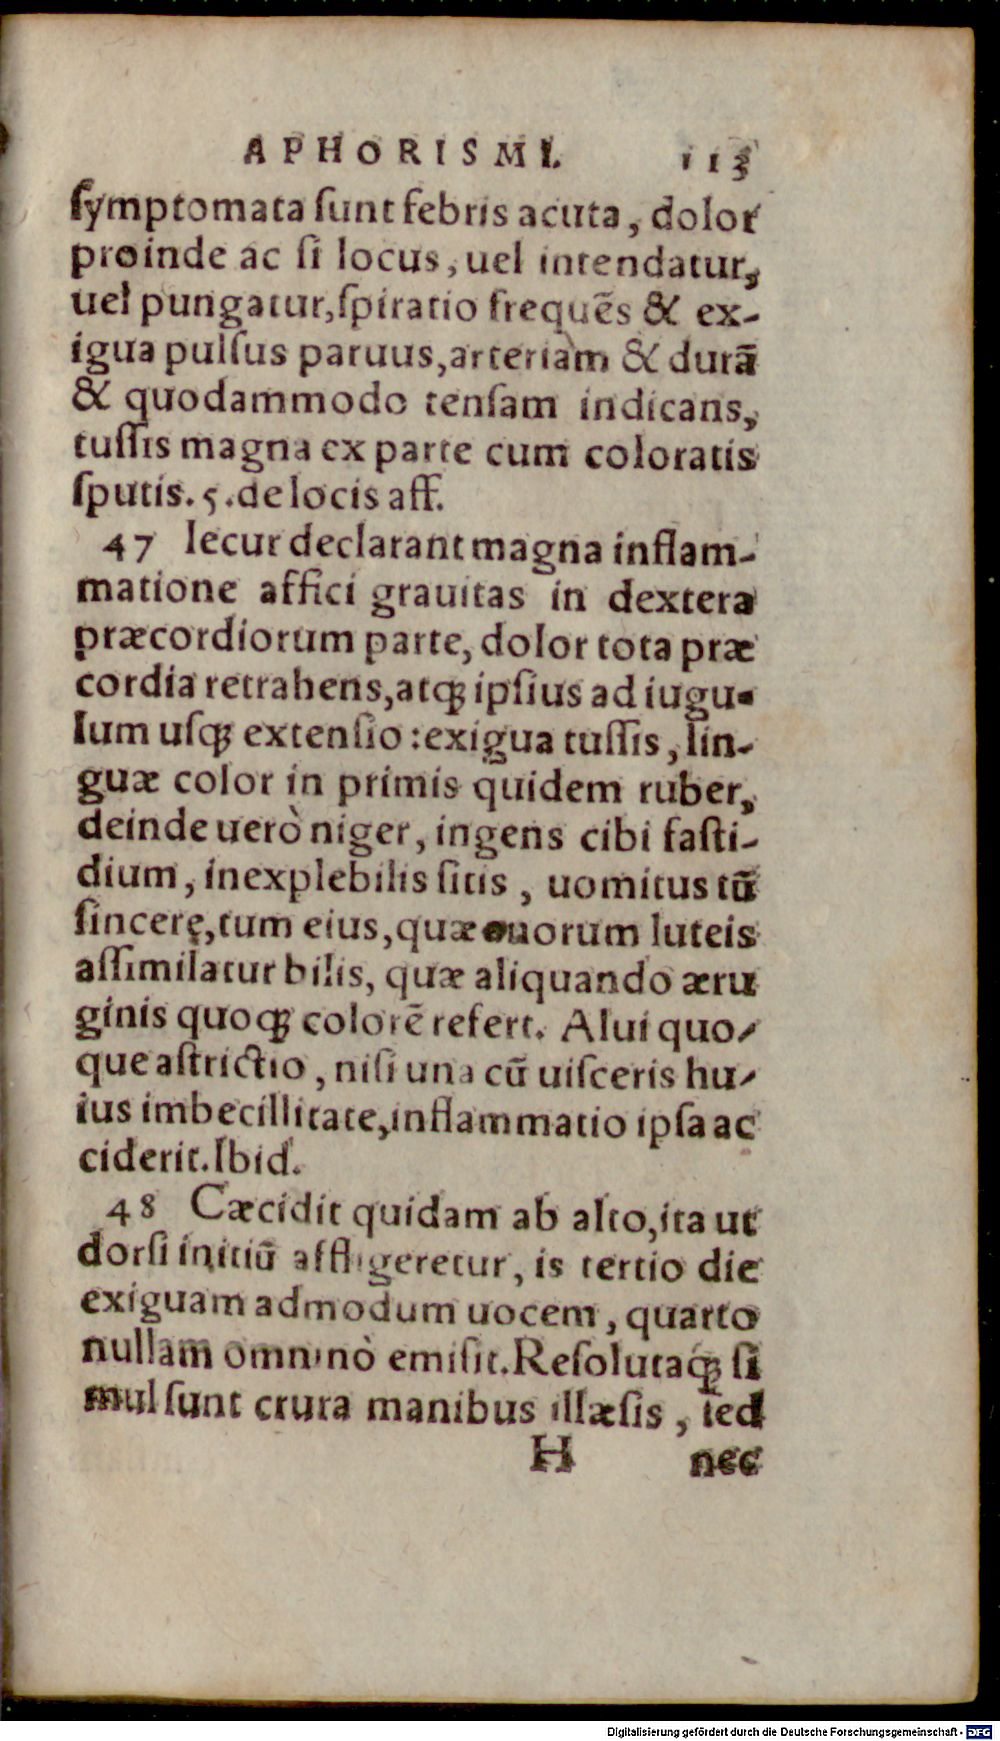 APHORISMI. 113
ſymptomata ſunt febris acuta, dolor
proinde ac ſi locus, uel intendatur,
uel pungatur, ſpiratio frequēs & ex-
igua pulſus paruus, arteriàm & durā
& quodammodo tenſam indicans,
tuſſis magna ex parte cum coloratis
ſputis. 5. de locis aff.
47 Iecur declarant magna inflam-
matione affici grauitas in dextera
præcordiorum parte, dolor tota præ
cordia retrahens, atq; ipſius ad iugu-
lum uſq; extenſio: exigua tuſſis, lin-
guæ color in primis quidem ruber,
deinde uerò niger, ingens cibi faſti-
dium, inexplebilis ſitis, uomitus tū
ſincerę, tum eius, quæ ouorum luteis
aſſimilatur bilis, quæ aliquando æru
ginis quoq; colorē refert. Alui quo-
que aſtrictio, niſi una cū uiſceris hu-
ius imbecillitate, inflammatio ipſa ac
ciderit. Ibid.
48 Cæcidit quidam ab alto, ita ut
dorſi initiū affligeretur, is tertio die
exiguam admodum uocem, quarto
nullam omninò emiſit. Reſolutaq; ſi
mul ſunt crura manibus illæſis, ſed
H nec
Digitalisierung gefördert durch die Deutsche Forschungsgemeinschaft - DFG